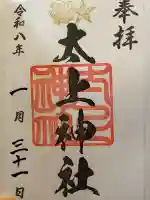 奉拝
太上神社
令和八年
一月三十一日